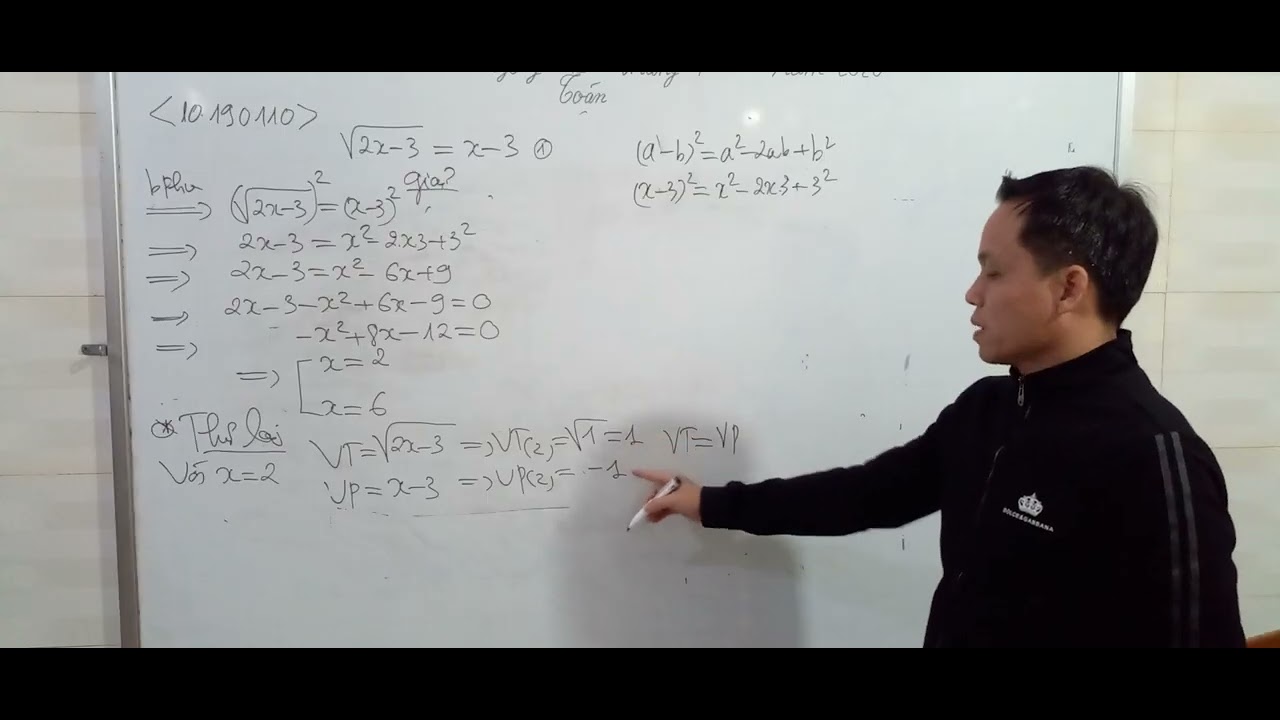 Toán
<10.190110>
√2x-3 = x-3 ①
(a-b)²=a²-2ab+b²
(x-3)²=x²-2x3+3²
bphư giải?
=> (√2x-3)²=(x-3)²
=> 2x-3=x²-2x3+3²
=> 2x-3=x²-6x+9
=> 2x-3-x²+6x-9=0
=> -x²+8x-12=0
=> [ x=2
x=6
* Thử lại
VT=√2x-3 =>VT(2)=√1=1 VT=VP
Với x=2
VP=x-3 =>VP(2)=-1
DOLCE&GABBANA